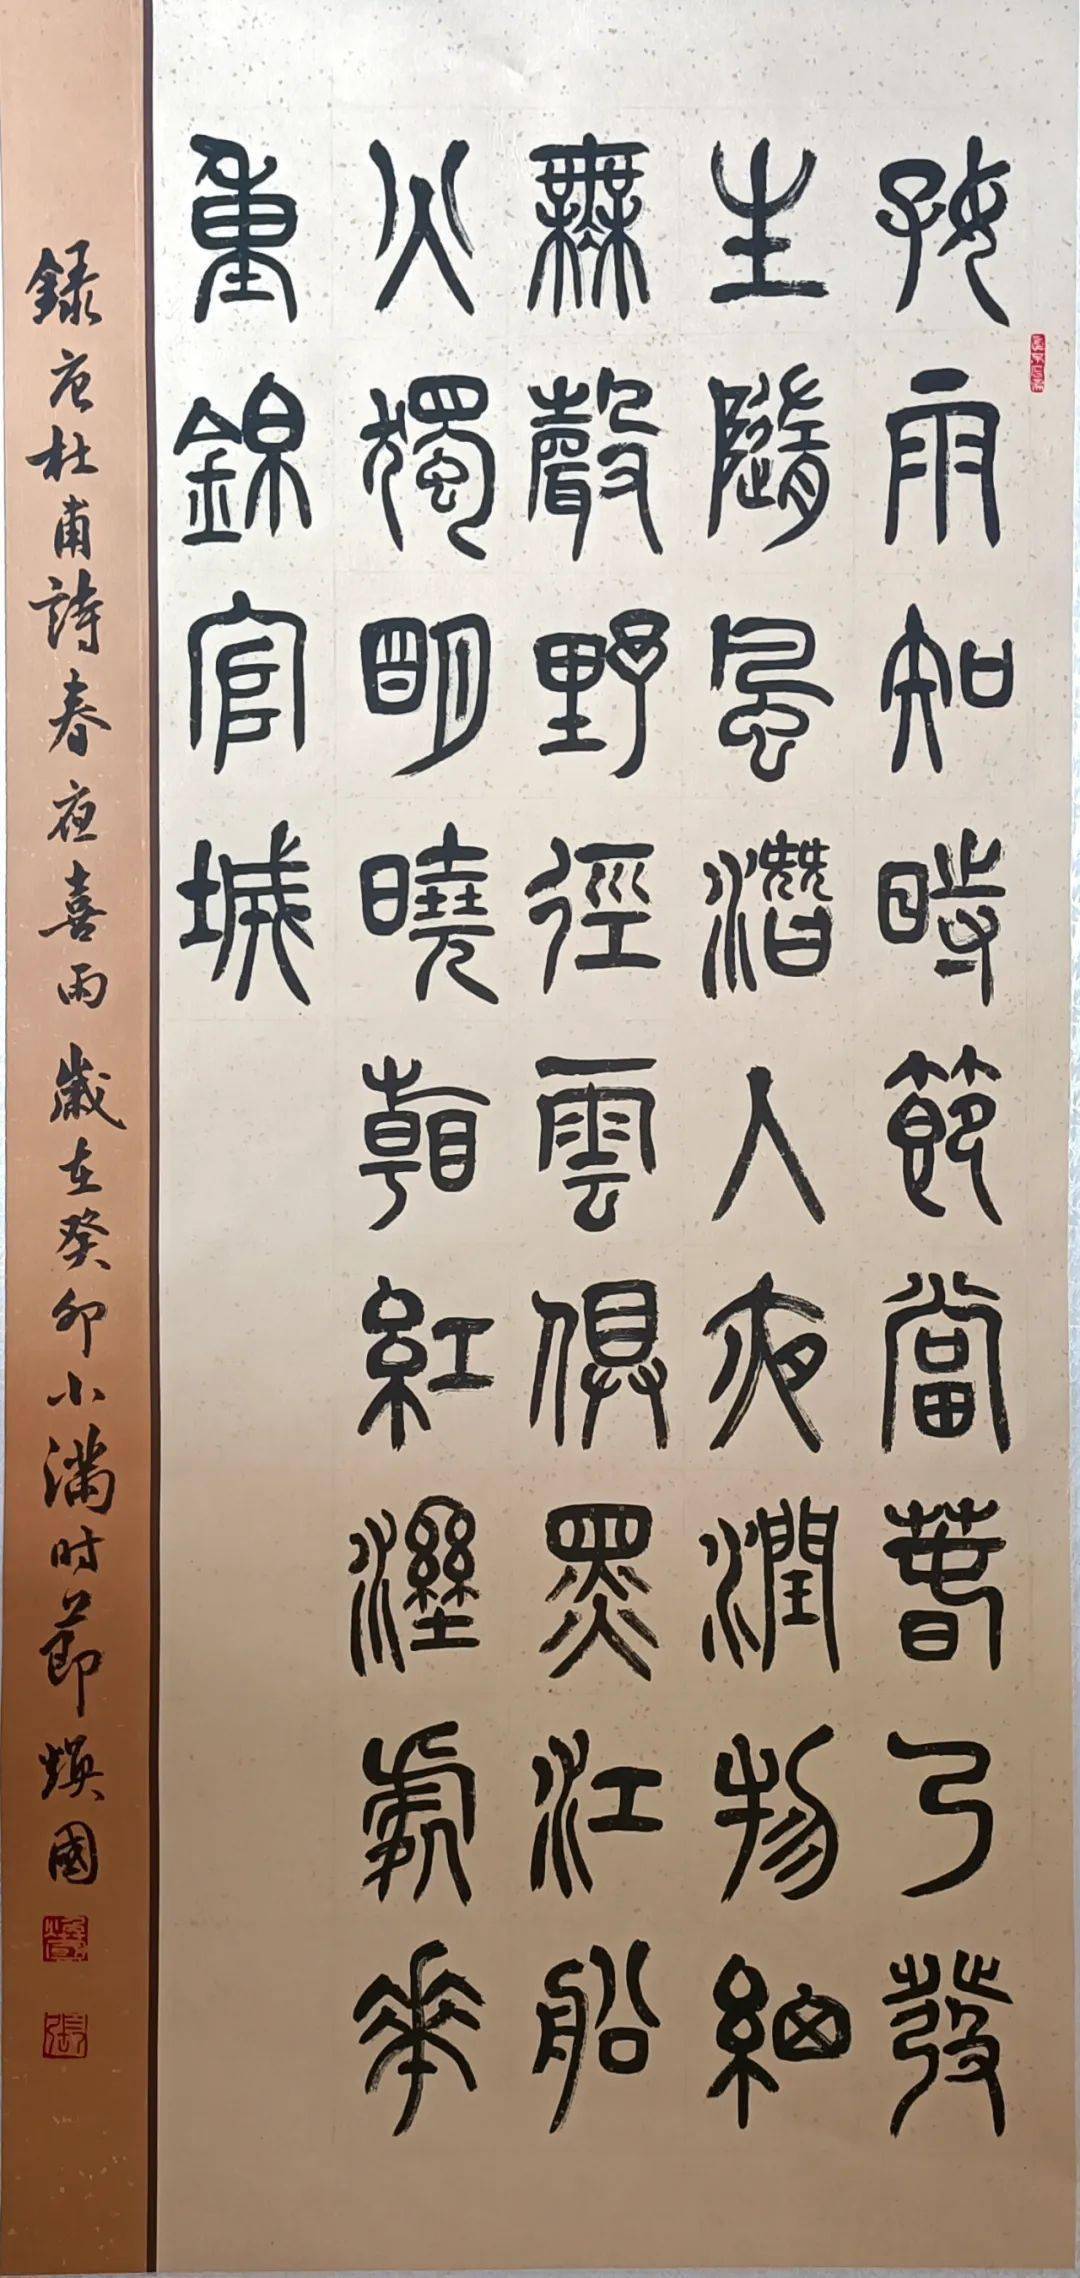 好雨知時節當春乃發
生隨風潛入夜潤物細
無聲野徑雲俱黑江船
火獨明曉看紅濕處花
重錦官城
錄唐杜甫詩春夜喜雨 歲在癸卯小滿时節 煥國
張